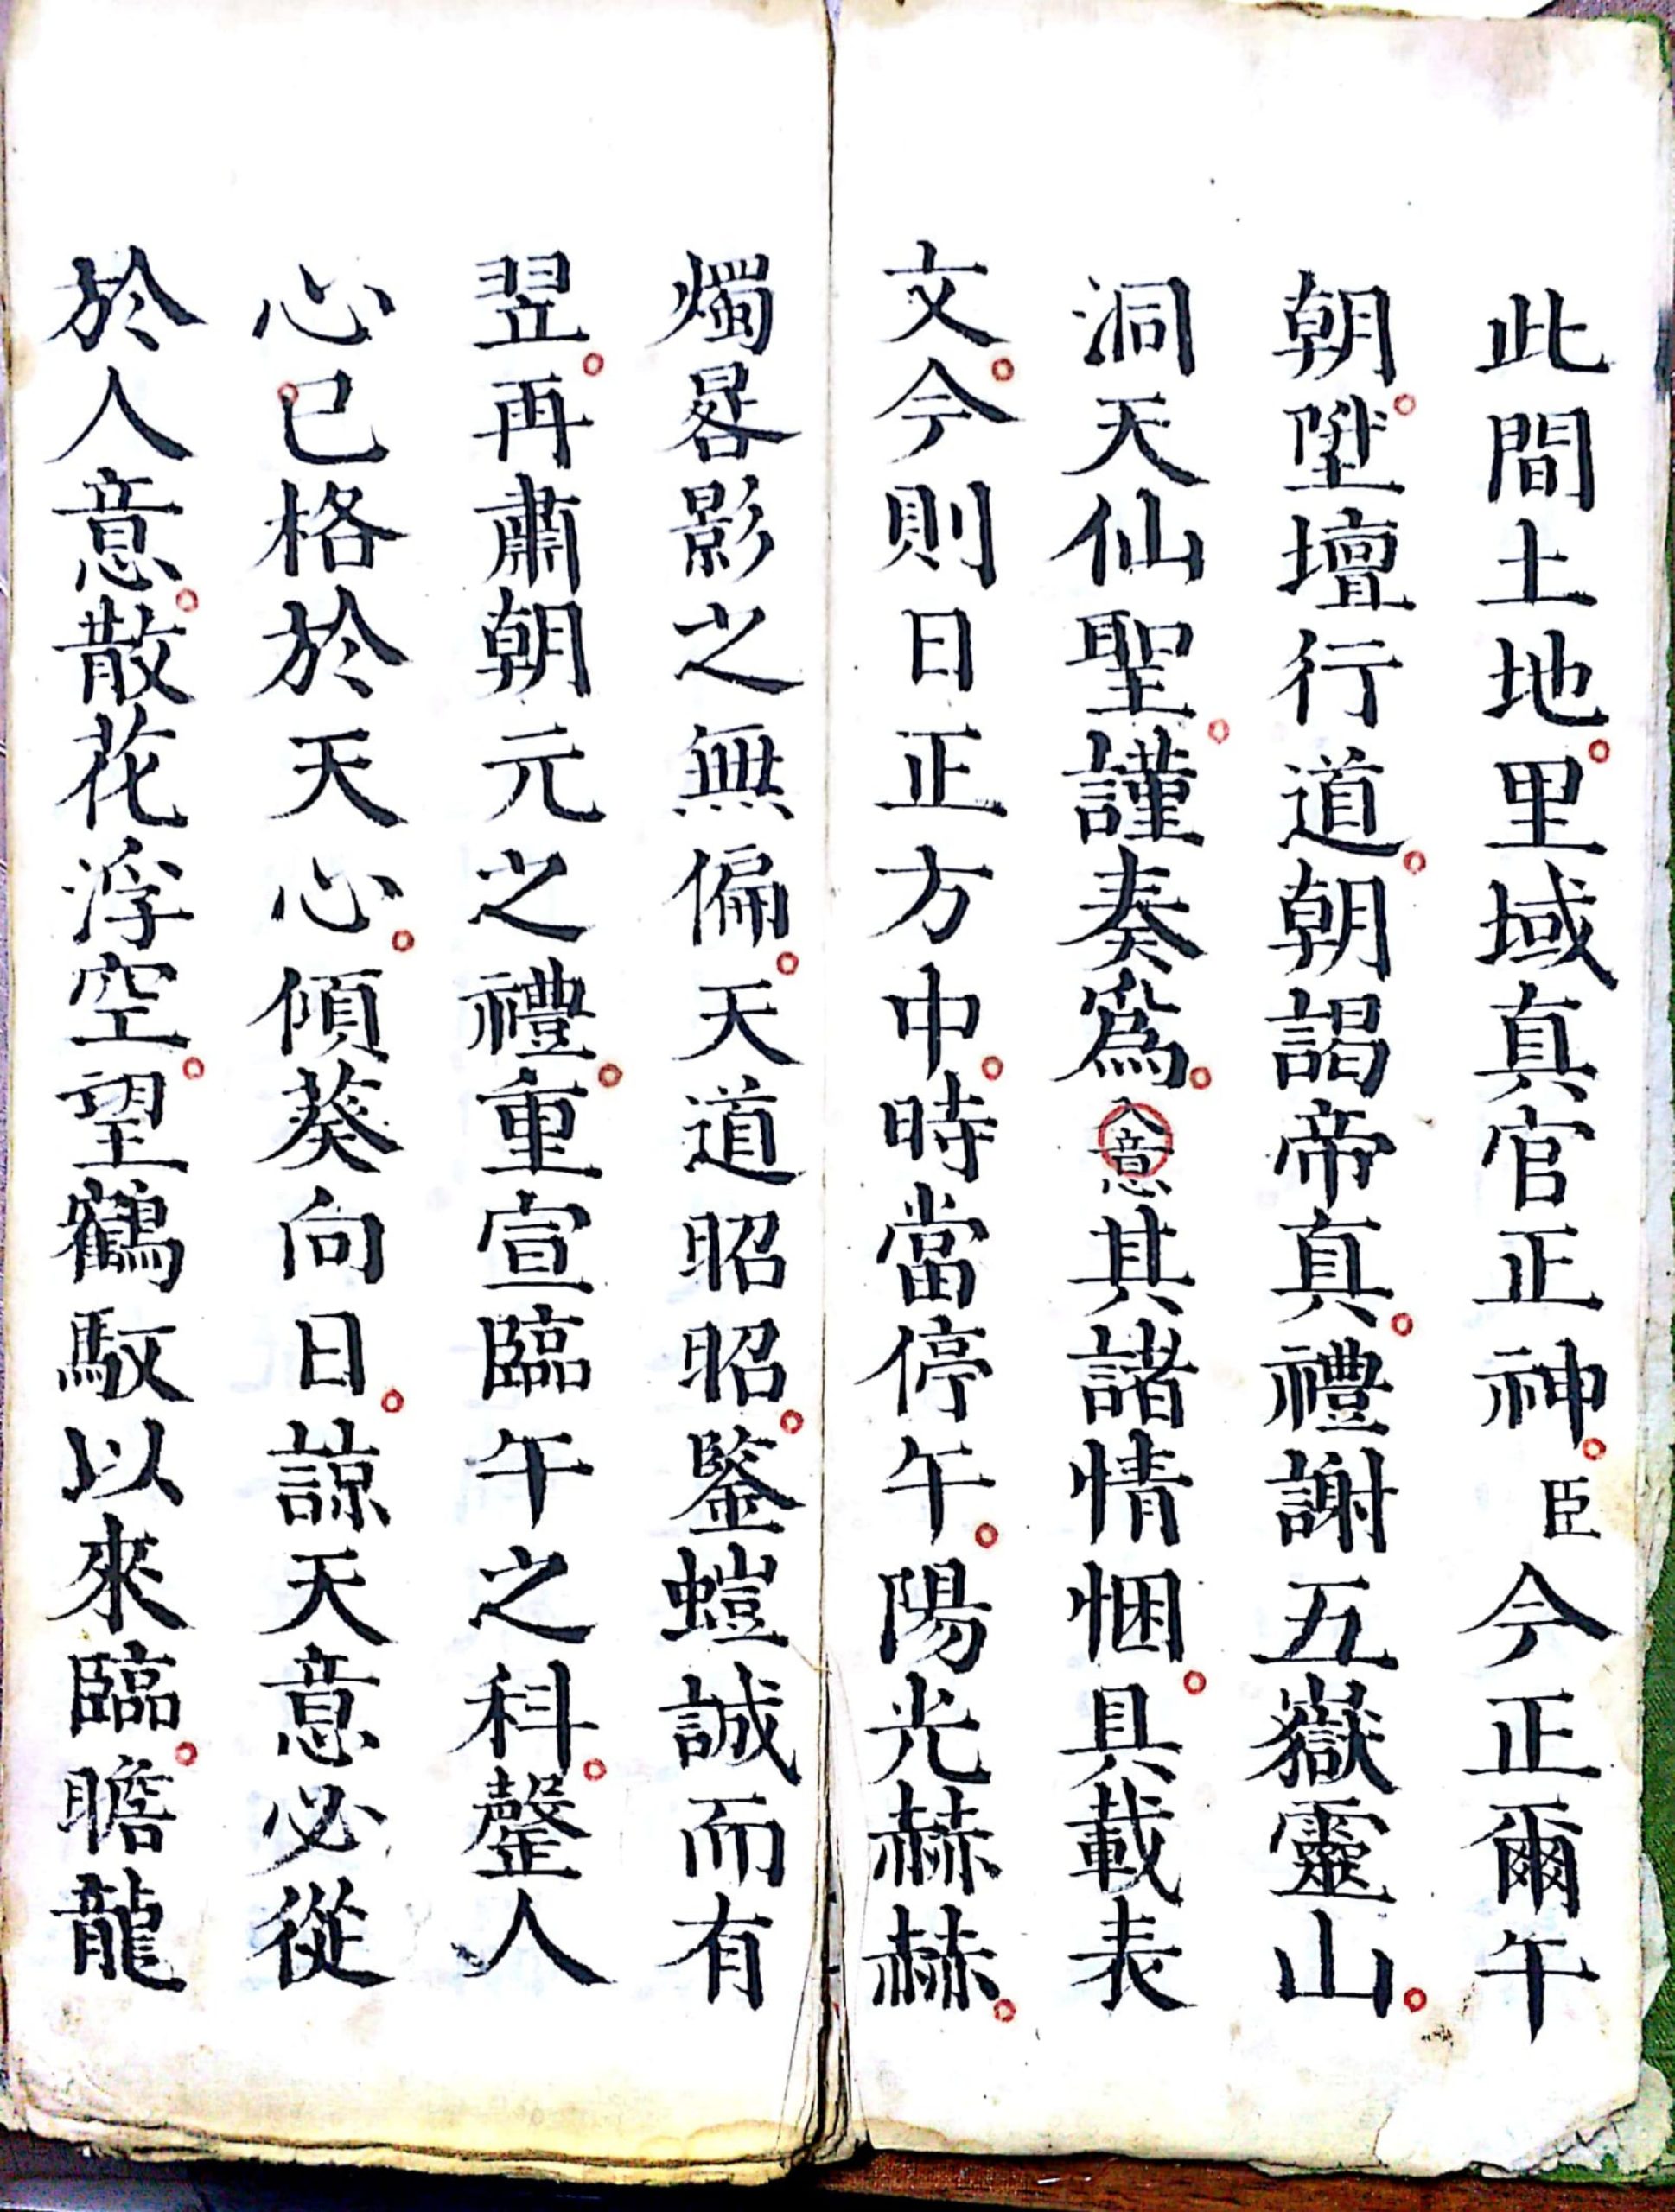 此間土地。里域真官正神。臣今正爾午
朝。陞壇行道。朝謁帝真。禮謝五嶽靈山。
洞天仙聖。謹奏為。入意其諸情悃。具載表
文。今則日正方中。時當停午。陽光赫赫。
燭晷影之無偏。天道昭昭。鑒螘誠而有
翌。再肅朝元之禮。重宣臨午之科。罄人
心。已格於天心。傾葵向日。諒天意必從
於人意。散花浮空。望鶴馭以來臨。瞻龍